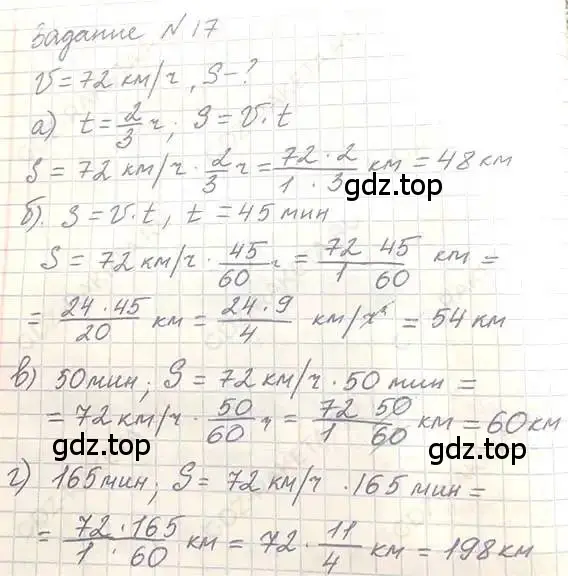 Задание № 17
V = 72 км/ч, S - ?
а) t = 2/3 ч; S = V · t
S = 72 км/ч · 2/3 ч = 72 · 2 / 1 · 3 км = 48 км
gdz.top
б). S = V · t, t = 45 мин
S = 72 км/ч · 45/60 ч = 72 45 / 1 60 км =
= 24 · 45 / 20 км = 24 · 9 / 4 км/ч = 54 км
в) 50 мин; S = 72 км/ч · 50 мин =
= 72 км/ч · 50/60 ч = 72 50 / 1 60 км = 60 км
gdz.top gdz.top
г) 165 мин; S = 72 км/ч · 165 мин =
= 72 · 165 / 1 · 60 км = 72 · 11/4 км = 198 км